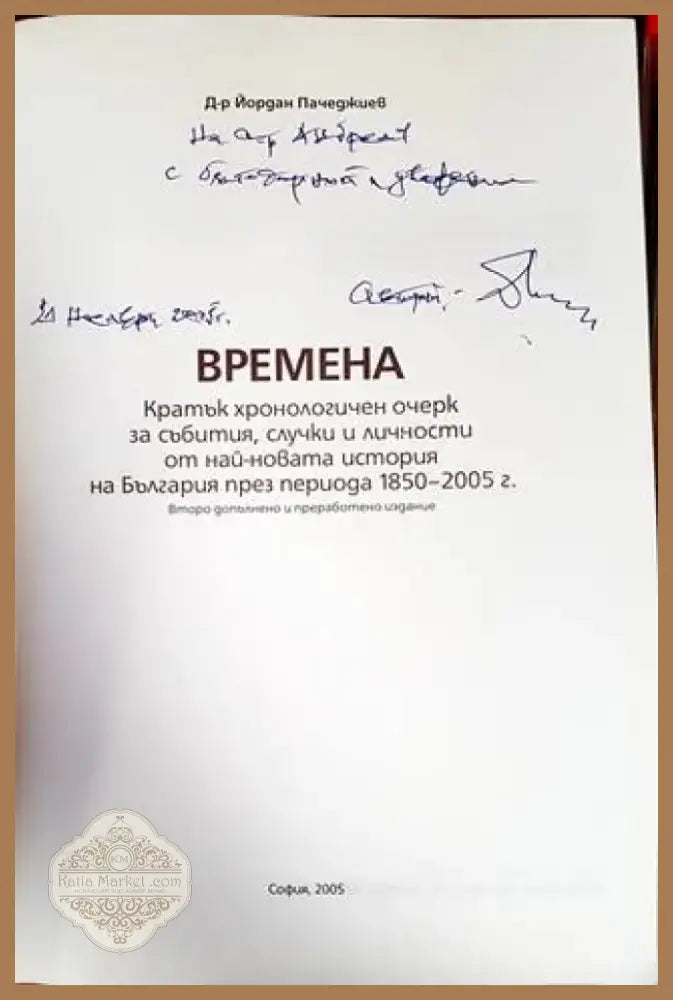 Д-р Йордан Пачеджиев
На д-р
с благодарност и уважение
21 Ноември 2005 г.
Автор:
ВРЕМЕНА
Кратък хронологичен очерк
за събития, случки и личности
от най-новата история
на България през периода 1850–2005 г.
Второ допълнено и преработено издание
KM
Katia Market .com
София, 2005